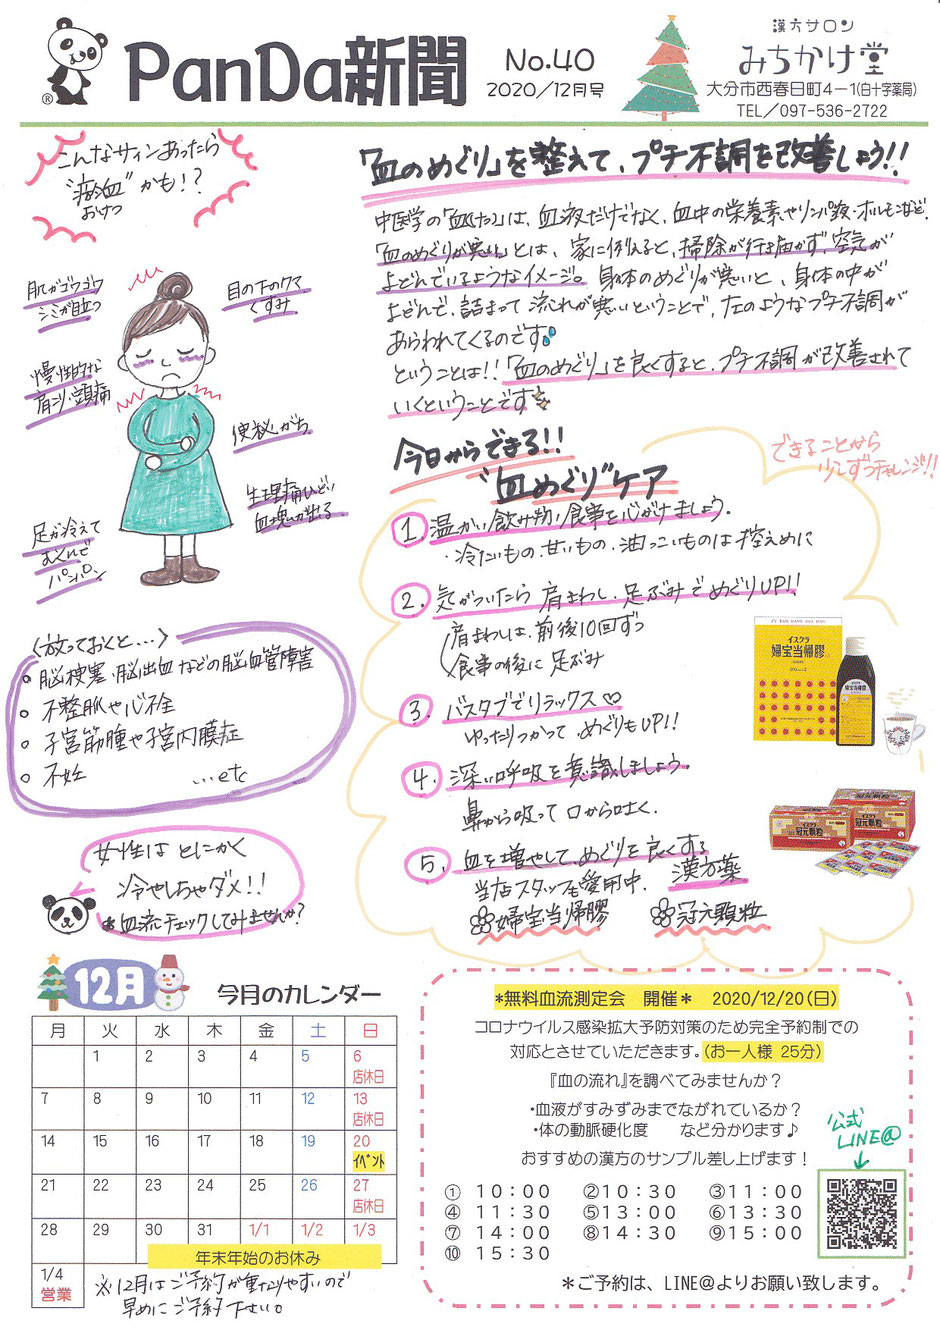 PanDa新聞
®
No.40
2020/12月号
漢方サロン
みちかけ堂
大分市西春日町4-1(白十字薬局)
TEL/097-536-2722
こんなサインあったら
"瘀血"かも!?
おけつ
肌がゴワゴワ
シミが目立つ
目の下のクマ
くすみ
慢性的な
肩こり・頭痛
便秘がち
生理痛ひどい
血塊が出る
足が冷えて
むくんで
パンパン
〈放っておくと…〉
○脳梗塞、脳出血などの脳血管障害
○不整脈や心不全
○子宮筋腫や子宮内膜症
○不妊 …etc
女性はとにかく
冷やしちゃダメ!!
*血流チェックしてみませんか?
「血のめぐり」を整えて、プチ不調を改善しよう!!
中医学の「血(けつ)」は、血液だけでなく、血中の栄養素やリンパ液・ホルモンなど。
「血のめぐりが悪い」とは、家に例えると、掃除が行き届かず、空気が
よどんでいるようなイメージ。身体のめぐりが悪いと、身体の中が
よどんで、詰まって流れが悪いということで、左のようなプチ不調が
あらわれてくるのです
ということは!!「血のめぐり」を良くすると、プチ不調が改善されて
いくということです
今日からできる!!
"血めぐり"ケア
できることから
少しずつチャレンジ!!
1. 温かい飲み物・食事を心がけましょう。
・冷たいもの、甘いもの、油っこいものは控えめに
2. 気がついたら 肩まわし、足ぶみでめぐりUP!!
肩まわしは、前後10回ずつ
食事の後に足ぶみ
3. バスタブでリラックス♡
ゆったりつかって めぐりもUP!!
4. 深い呼吸を意識しましょう。
鼻から吸って口から吐く。
5. 血を増やして、めぐりを良くする
当店スタッフも愛用中、漢方薬
婦宝当帰膠 冠元顆粒
FU BAO DANG GUI JIAO
イスクラ
婦宝当帰膠
イスクラ
冠元顆粒
12月
今月のカレンダー
月 火 水 木 金 土 日
1 2 3 4 5 6
店休日
7 8 9 10 11 12 13
店休日
14 15 16 17 18 19 20
イベント
21 22 23 24 25 26 27
店休日
28 29 30 31 1/1 1/2 1/3
年末年始のお休み
1/4
営業
※12月はご予約が重なりやすいので
早めにご予約下さい。
*無料血流測定会 開催* 2020/12/20(日)
コロナウイルス感染拡大予防対策のため完全予約制での
対応とさせていただきます。(お一人様 25分)
『血の流れ』を調べてみませんか?
・血液がすみずみまでながれているか?
・体の動脈硬化度 など分かります♪
おすすめの漢方のサンプル差し上げます!
公式
LINE@
① 10:00 ②10:30 ③11:00
④ 11:30 ⑤13:00 ⑥13:30
⑦ 14:00 ⑧14:30 ⑨15:00
⑩ 15:30
*ご予約は、LINE@よりお願い致します。